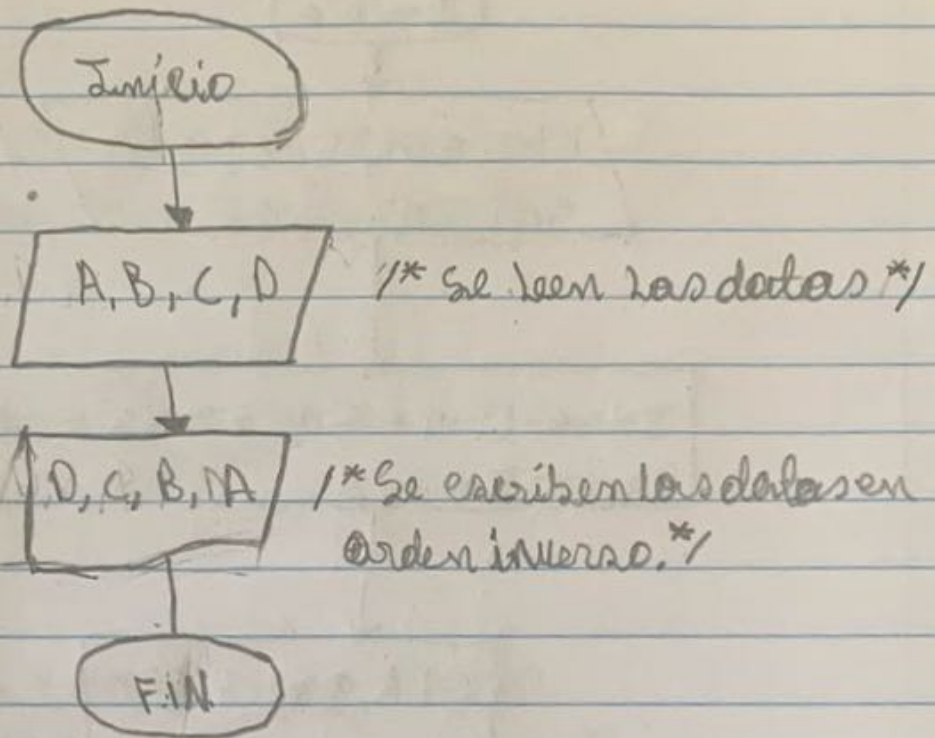 Início
A, B, C, D
/* Se leen los datos */
D, C, B, A
/* Se escriben los datos en
orden inverso. */
FIN